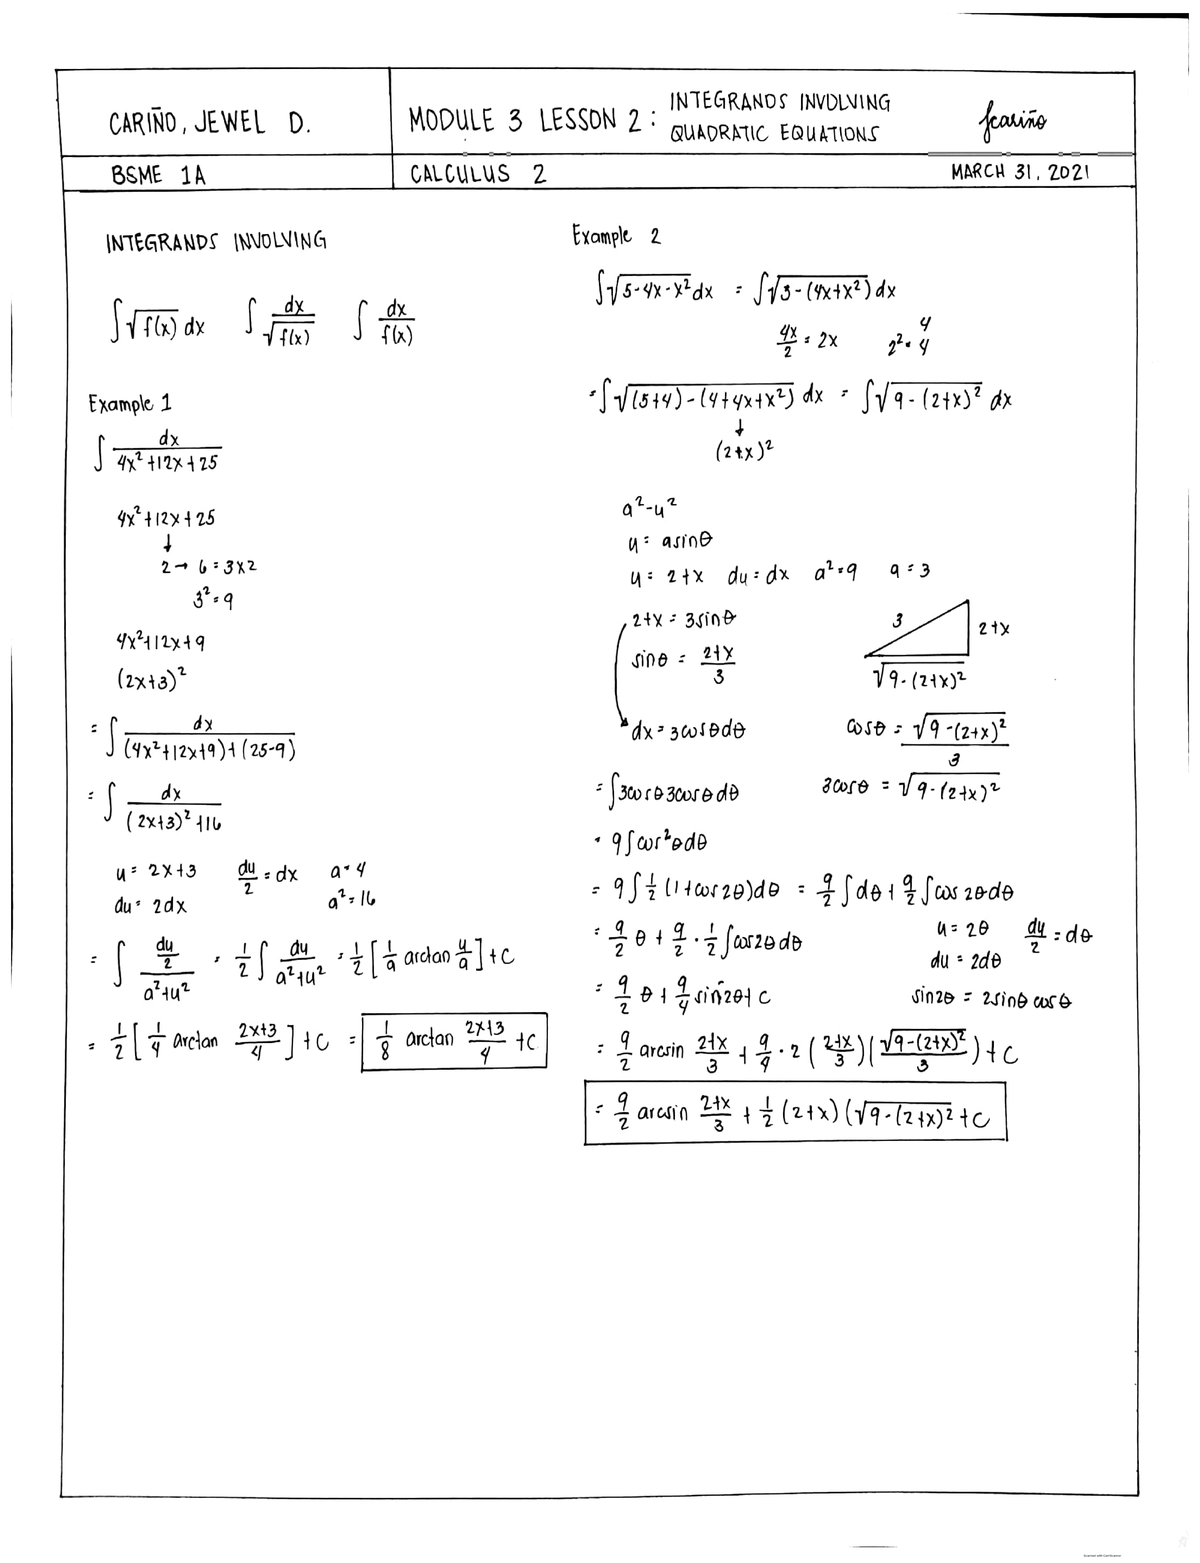 CARIÑO, JEWEL D.
MODULE 3 LESSON 2: INTEGRANDS INVOLVING QUADRATIC EQUATIONS
jcariño
BSME 1A
CALCULUS 2
MARCH 31, 2021
INTEGRANDS INVOLVING
∫√f(x) dx   ∫ dx/√f(x)   ∫ dx/f(x)
Example 1
∫ dx/(4x²+12x+25)
4x²+12x+25
↓
2 → 6 = 3x2
3² = 9
4x²+12x+9
(2x+3)²
= ∫ dx/((4x²+12x+9)+(25-9))
= ∫ dx/((2x+3)²+16)
u = 2x+3   du/2 = dx   a = 4
du = 2dx   a² = 16
= ∫ (du/2)/(a²+u²) = 1/2 ∫ du/(a²+u²) = 1/2 [1/a arctan u/a] + C
= 1/2 [1/4 arctan (2x+3)/4] + C = 1/8 arctan (2x+3)/4 + C
Example 2
∫√(5-4x-x²) dx = ∫√(3-(4x+x²)) dx
4x/2 = 2x   2² = 4
4
= ∫√((5+4)-(4+4x+x²)) dx = ∫√(9-(2+x)²) dx
↓
(2+x)²
a²-u²
u = asinθ
u = 2+x   du = dx   a² = 9   a = 3
2+x = 3sinθ
sinθ = (2+x)/3
3
2+x
√(9-(2+x)²)
dx = 3cosθdθ   cosθ = √(9-(2+x)²)/3
= ∫3cosθ3cosθdθ   3cosθ = √(9-(2+x)²)
= 9∫cos²θdθ
= 9∫ 1/2 (1+cos2θ)dθ = 9/2 ∫dθ + 9/2 ∫cos2θdθ
= 9/2 θ + 9/2 · 1/2 ∫cos2θdθ   u = 2θ   du/2 = dθ
du = 2dθ
= 9/2 θ + 9/4 sin2θ + C   sin2θ = 2sinθcosθ
= 9/2 arcsin (2+x)/3 + 9/4 · 2 ((2+x)/3)(√(9-(2+x)²)/3) + C
= 9/2 arcsin (2+x)/3 + 1/2 (2+x)(√(9-(2+x)²) + C
Scanned with CamScanner